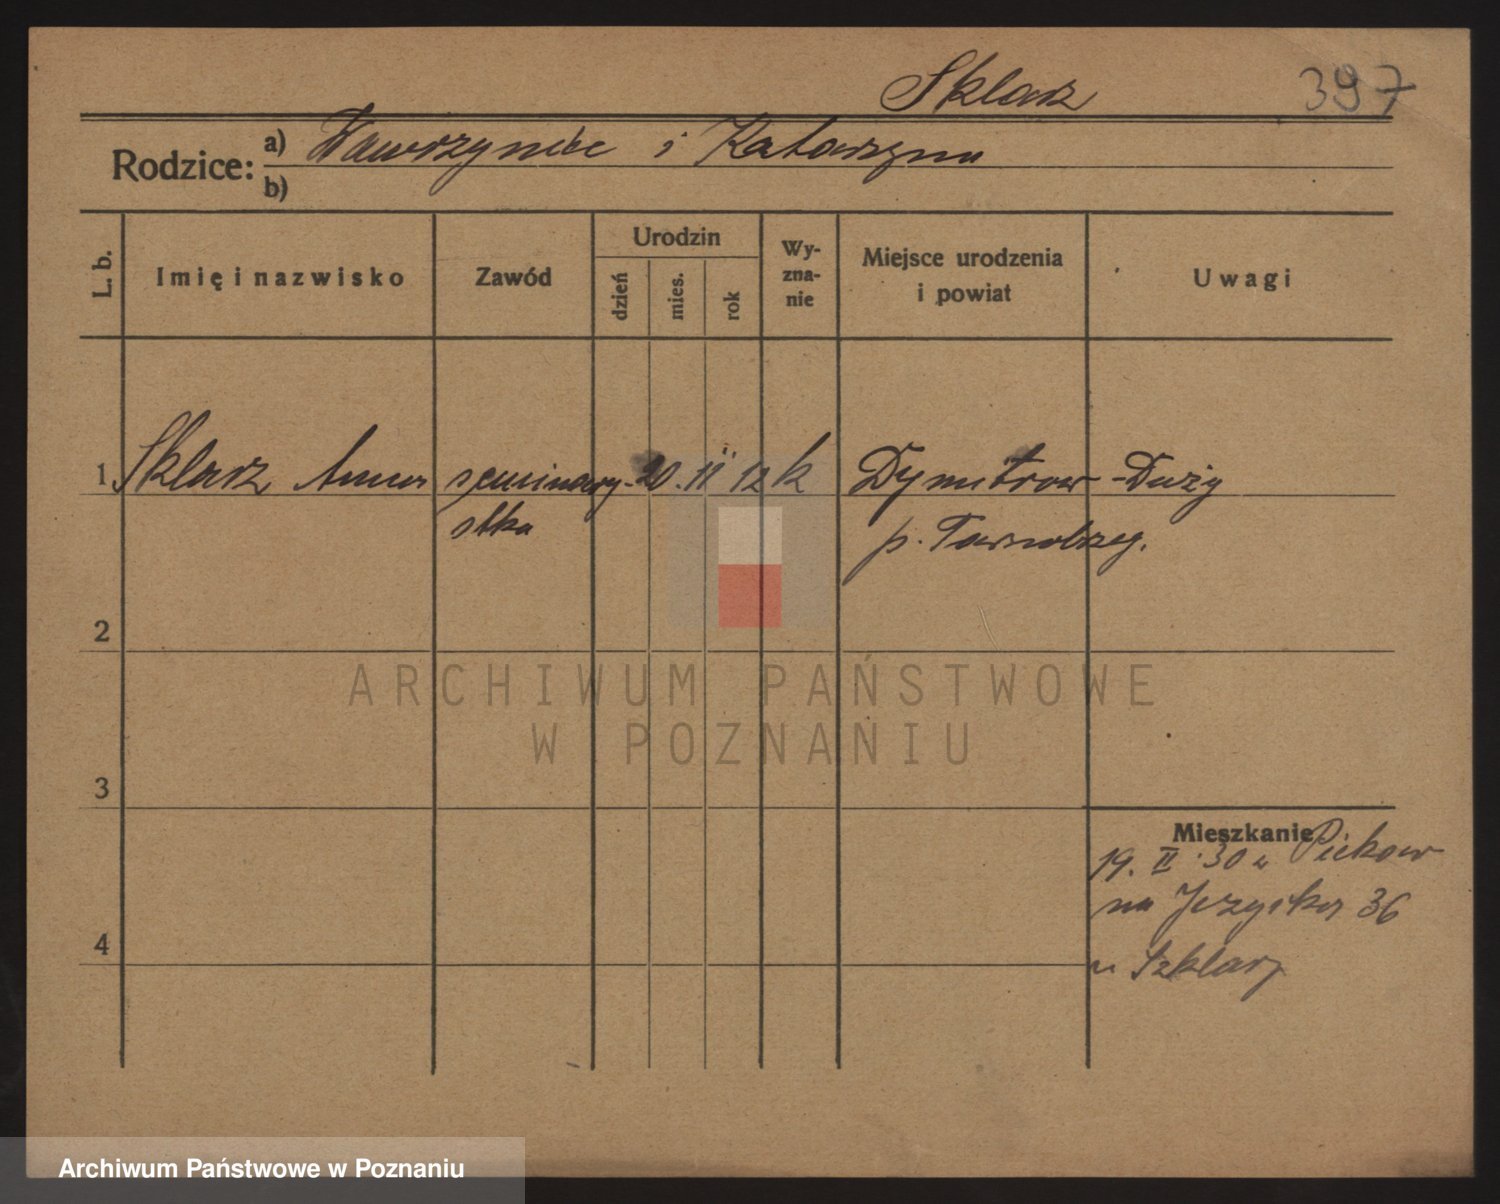 Sklarz 397
Rodzice: a) Wawrzyniec i Katarzyna
b)
L. b. Imię i nazwisko Zawód Urodzin dzień mies. rok Wy-zna-nie Miejsce urodzenia i powiat Uwagi
1 Sklarz Anna seminarzy- 20. II 12 k Dymitrow-Duży
stka p. Tarnobrzeg.
2
3
Mieszkanie
19. II. 30 z Piekar
na Jeżycka 36
4
u Szklarz
ARCHIWUM PAŃSTWOWE
W POZNANIU
Archiwum Państwowe w Poznaniu